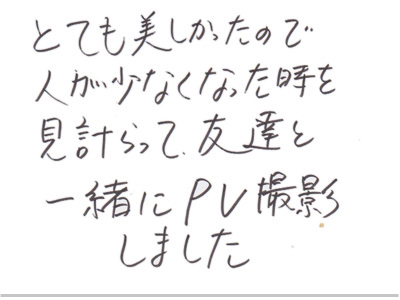 とても美しかったので
人が少なくなった時を
見計らって、友達と
一緒にPV撮影
しました